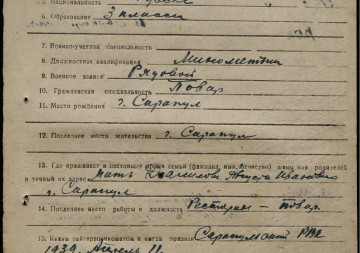 5. Национальность
6. Образование 3 класса
7. Военно-учетная специальность
8. Должностная квалификация Минометчик
9. Военное звание Рядовой
10. Гражданская специальность Повар
11. Место рождения г. Сарапул
12. Последнее место жительства г. Сарапул
13. Где проживает в настоящее время семья (фамилия, имя, отчество) жены или родителей
и точный их адрес мать
г. Сарапул
14. Последнее место работы и должность Ресторан — повар.
15. Каким райвоенкоматом и когда призван Сарапульский РВК
1939 Апрель 11